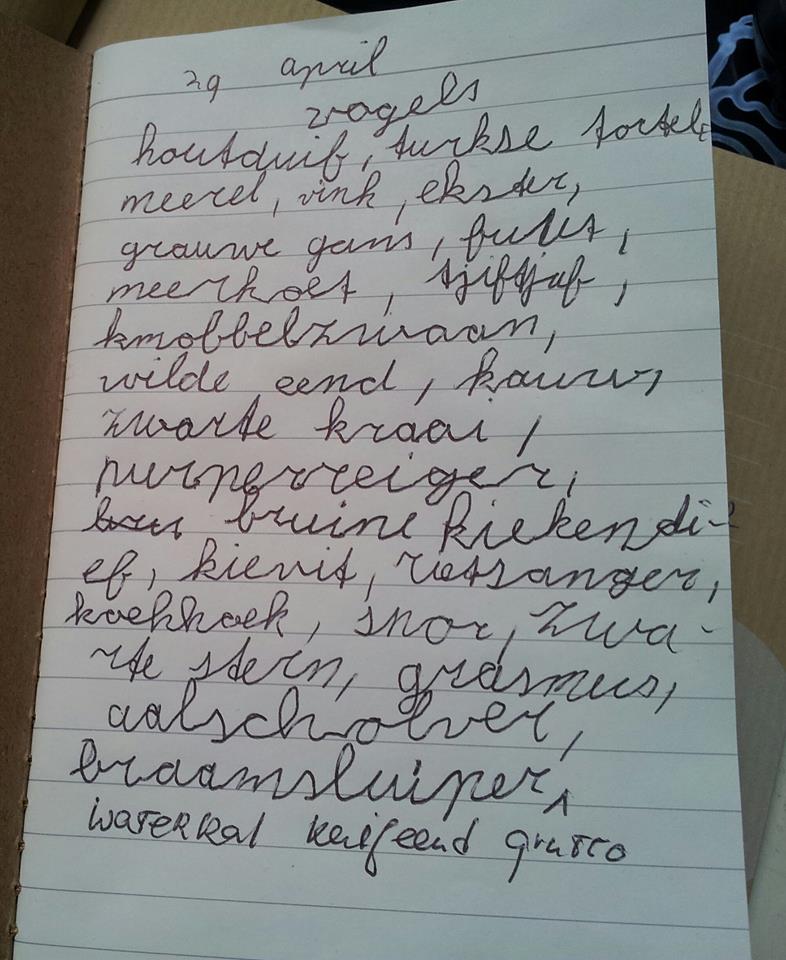 29 april
vogels
houtduif, turkse tortel,
meerel, vink, ekster,
grauwe gans, fuut,
meerkoet, tjiftjaf,
knobbelzwaan,
wilde eend, kauw,
zwarte kraai,
purperreiger,
bru bruine kiekendi-
ef, kievit, rietzanger,
koekkoek, snor, zwa-
rte stern, grasmus,
aalscholver,
braamsluiper,
waterral kuifeend grutto